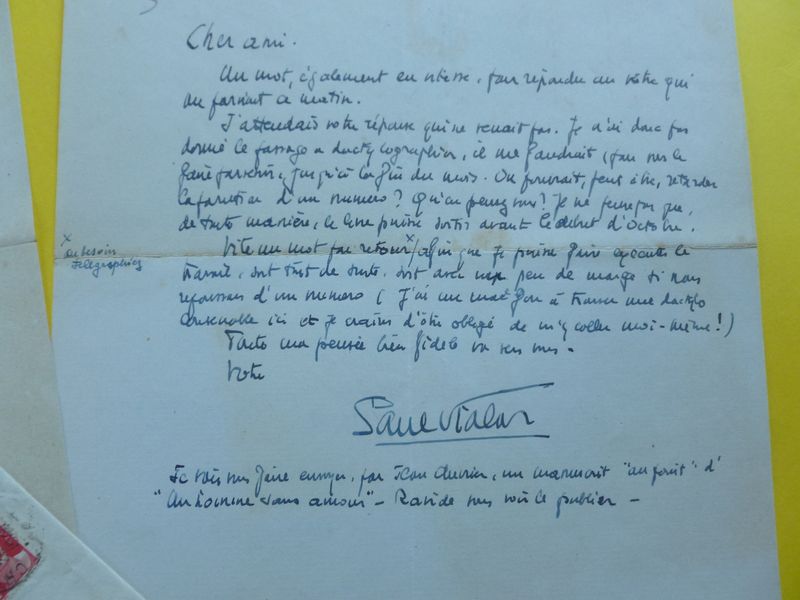 Cher ami.
Un mot, également en vitesse, pour répondre au vôtre qui
me parvient ce matin.
J'attendais votre réponse qui ne venait pas. Je n'ai donc pas
donné le passage à dactylographier, il me faudrait, pour vous le
faire parvenir, jusqu'à la fin du mois. On pourrait, peut-être, retarder
la parution d'un numéro? Qu'en pensez-vous? Je ne pense pas que,
de toute manière, le livre puisse sortir avant le début d'Octobre.
Vite un mot par retour x afin que je puisse faire exécuter le
x au besoin
télégraphiez
travail, soit tout de suite, soit avec un peu de marge si nous
repoussons d'un numéro (J'ai un mal fou à trouver une dactylo
convenable ici et je crains d'être obligé de m'y coller moi-même!)
Toute ma pensée bien fidèle va vers vous.
Votre
Paul Vialar
Je vais vous faire envoyer, par un manuscrit "
"Un homme sans amour" - Ravi de vous voir le publier -